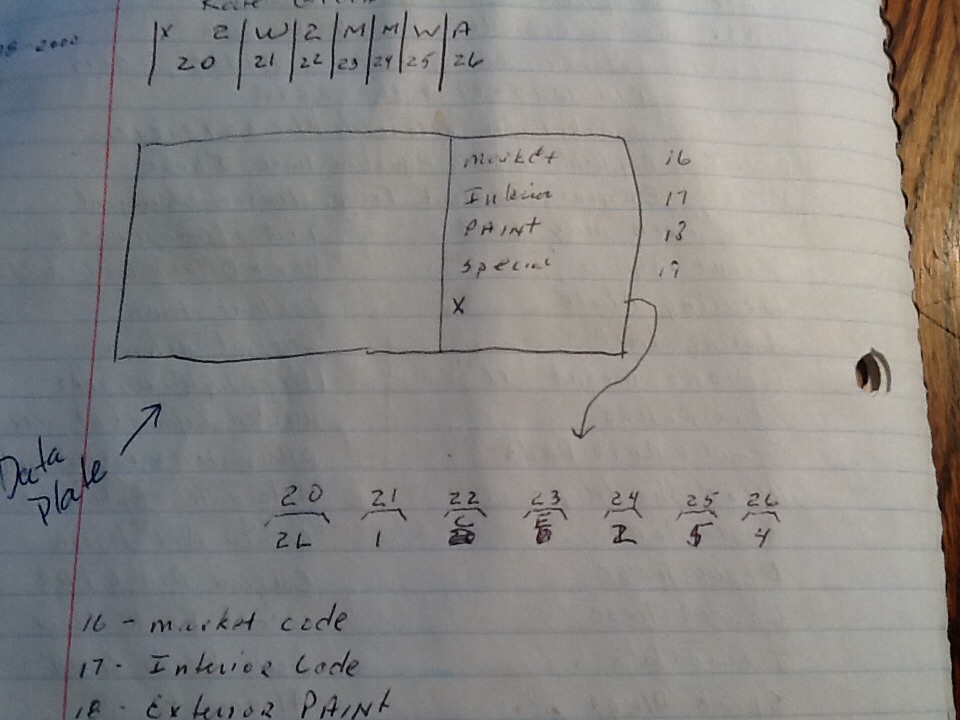 x 2 W 2 M M W A
20 21 22 23 24 25 26
Market 16
Interior 17
PAINT 18
Special 19
X
Data
Plate
20 21 22 23 24 25 26
2L 1 C E 2 5 4
16 - market code
17 - Interior Code
18 - Exterior PAINT